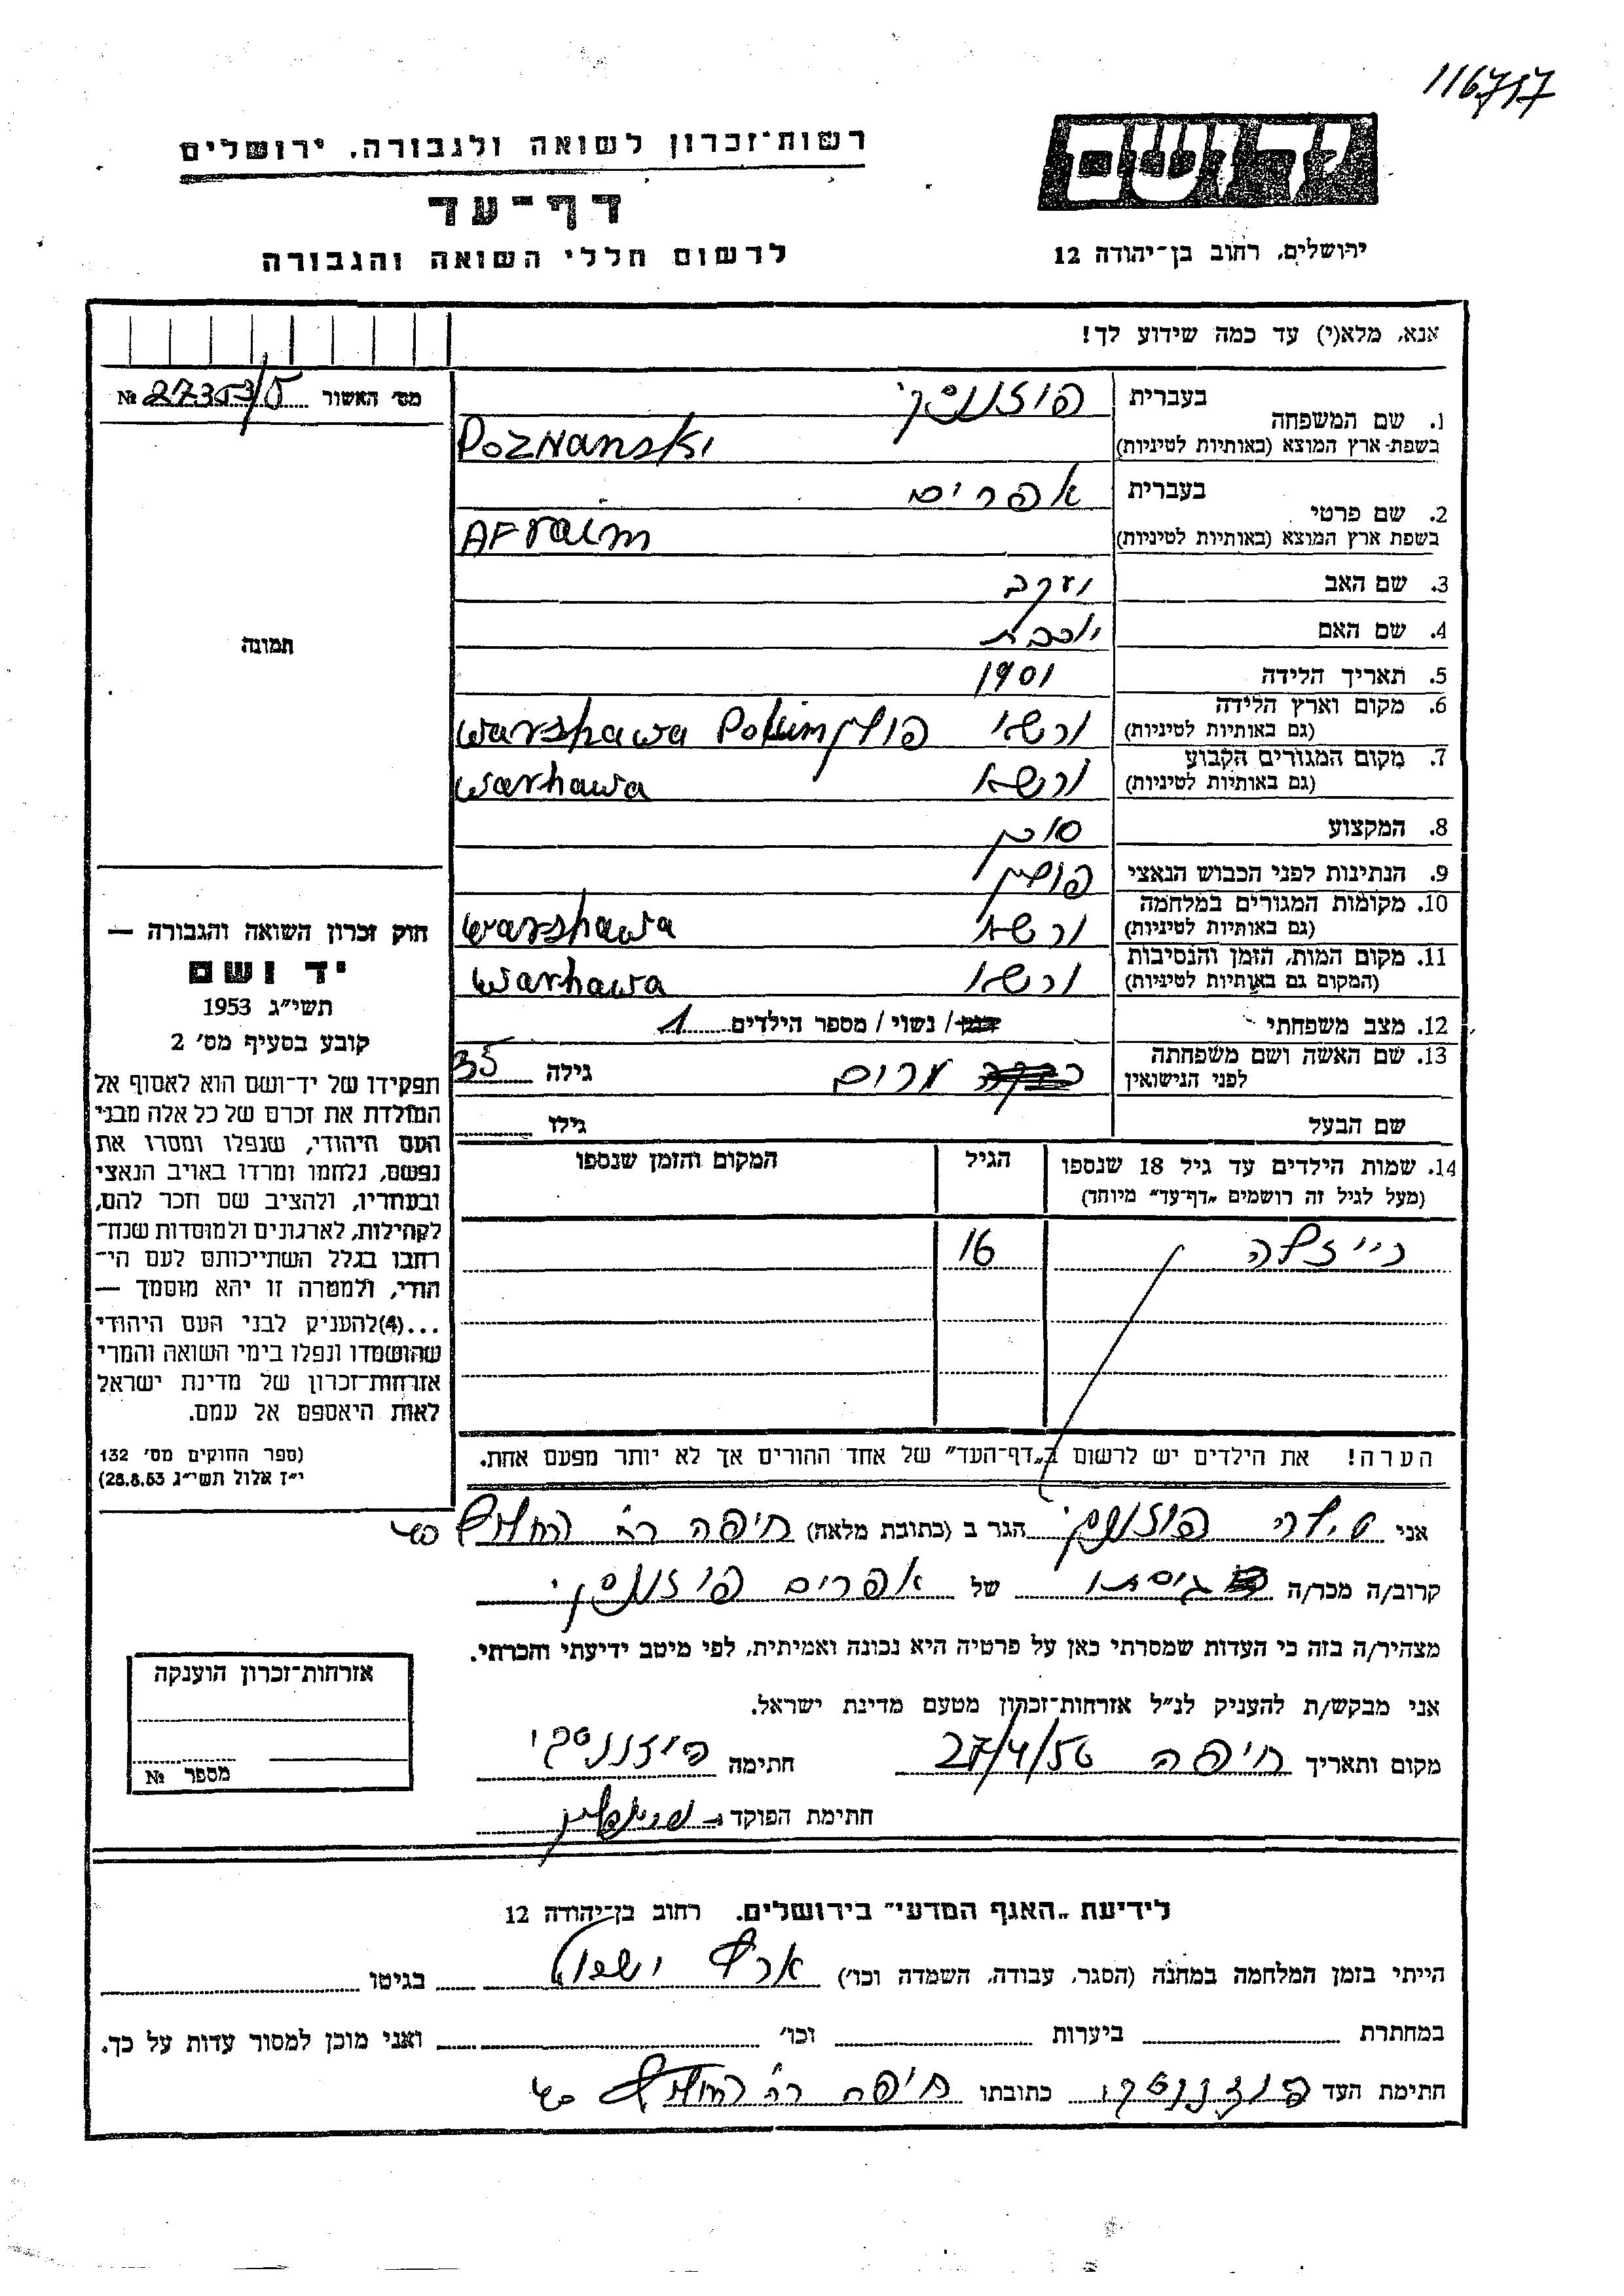 116717
יד ושם
רשות־זכרון לשואה ולגבורה, ירושלים
דף־עד
לרשום חללי השואה והגבורה
ירושלים, רחוב בן־יהודה 12
אנא, מלא(י) עד כמה שידוע לך!
מס׳ האשור № 27353/5
1. שם המשפחה בעברית פוזננסקי
בשפת־ארץ המוצא (באותיות לטיניות) Poznanski
2. שם פרטי בעברית אפרים
בשפת ארץ המוצא (באותיות לטיניות) AFraim
3. שם האב יעקב
4. שם האם יוכבת
5. תאריך הלידה 1901
6. מקום וארץ הלידה
(גם באותיות לטיניות) ורשא פולין warshawa
7. מקום המגורים הקבוע
(גם באותיות לטיניות) ורשא warhawa
8. המקצוע סוכן
9. הנתינות לפני הכבוש הנאצי פולין
10. מקומות המגורים במלחמה
(גם באותיות לטיניות) ורשא warshawa
11. מקום המות, הזמן והנסיבות
(המקום גם באותיות לטיניות) ורשא warhawa
12. מצב משפחתי רווק / נשוי / מספר הילדים 1
13. שם האשה ושם משפחתה
לפני הנישואין מרים גילה 35
שם הבעל גילו
14. שמות הילדים עד גיל 18 שנספו
(מעל לגיל זה רושמים „דף־עד״ מיוחד)
הגיל
המקום והזמן שנספו
רייזלה 16
הערה! את הילדים יש לרשום ב„דף־העד״ של אחד ההורים אך לא יותר מפעם אחת.
תמונה
חוק זכרון השואה והגבורה —
יד ושם
תשי״ג 1953
קובע בסעיף מס׳ 2
תפקידו של יד־ושם הוא לאסוף אל
המולדת את זכרם של כל אלה מבני
העם היהודי, שנפלו ומסרו את
נפשם, נלחמו ומרדו באויב הנאצי
ובעוזריו, ולהציב שם וזכר להם,
לקהילות, לארגונים ולמוסדות שנח־
רבו בגלל השתייכותם לעם הי־
הודי, ולמטרה זו יהא מוסמך —
...(4)להעניק לבני העם היהודי
שהושמדו ונפלו בימי השואה והמרי
אזרחות־זכרון של מדינת ישראל
לאות היאספם אל עמם.
(ספר החוקים מס׳ 132
י״ז אלול תשי״ג 28.8.53)
אני פוזננסקי הגר ב (כתובת מלאה) חיפה רח׳ החלוץ
קרוב/ה מכר/ה גיסתו של אפרים פוזננסקי
מצהיר/ה בזה כי העדות שמסרתי כאן על פרטיה היא נכונה ואמיתית, לפי מיטב ידיעתי והכרתי.
אני מבקש/ת להעניק לנ״ל אזרחות־זכרון מטעם מדינת ישראל.
מקום ותאריך חיפה 27/4/56 חתימה פוזננסקי
חתימת הפוקד
אזרחות־זכרון הוענקה
מספר №
לידיעת „האגף המדעי״ בירושלים. רחוב בן־יהודה 12
הייתי בזמן המלחמה במחנה (הסגר, עבודה, השמדה וכו׳) ארץ ישראל בגיטו
במחתרת ביערות וכו׳ ואני מוכן למסור עדות על כך.
חתימת העד פוזננסקי כתובתו חיפה רח׳ החלוץ